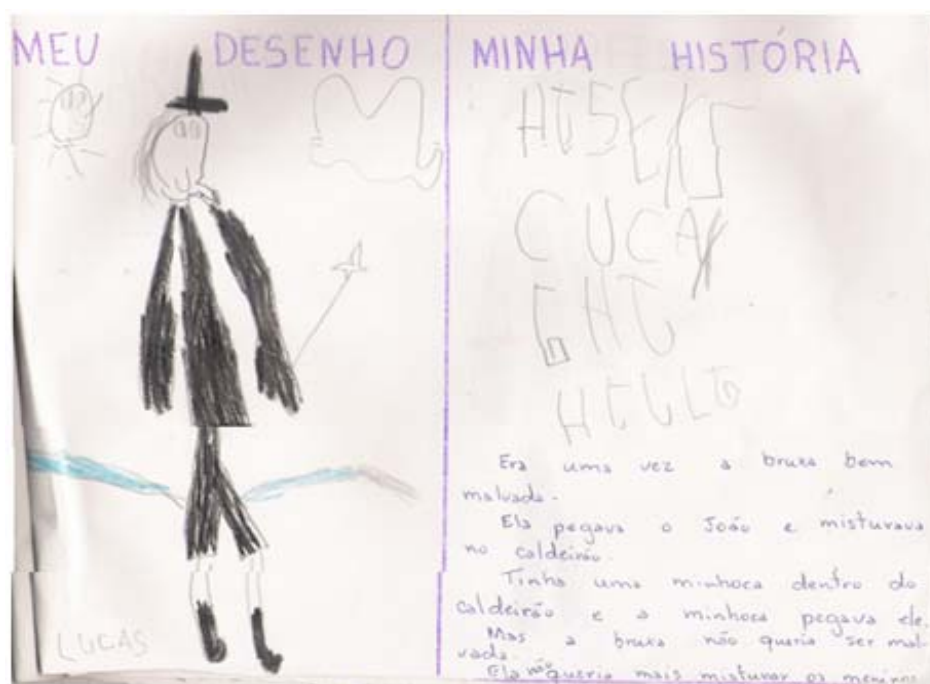 MEU DESENHO
MINHA HISTÓRIA
CUCA
GHT
Era uma vez a bruxa bem
malvada.
Ela pegava o João e misturava
no caldeirão.
Tinha uma minhoca dentro do
caldeirão e a minhoca pegava ele.
Mas a bruxa não queria ser mal-
vada.
Ela não queria mais misturar os meninos
LUCAS